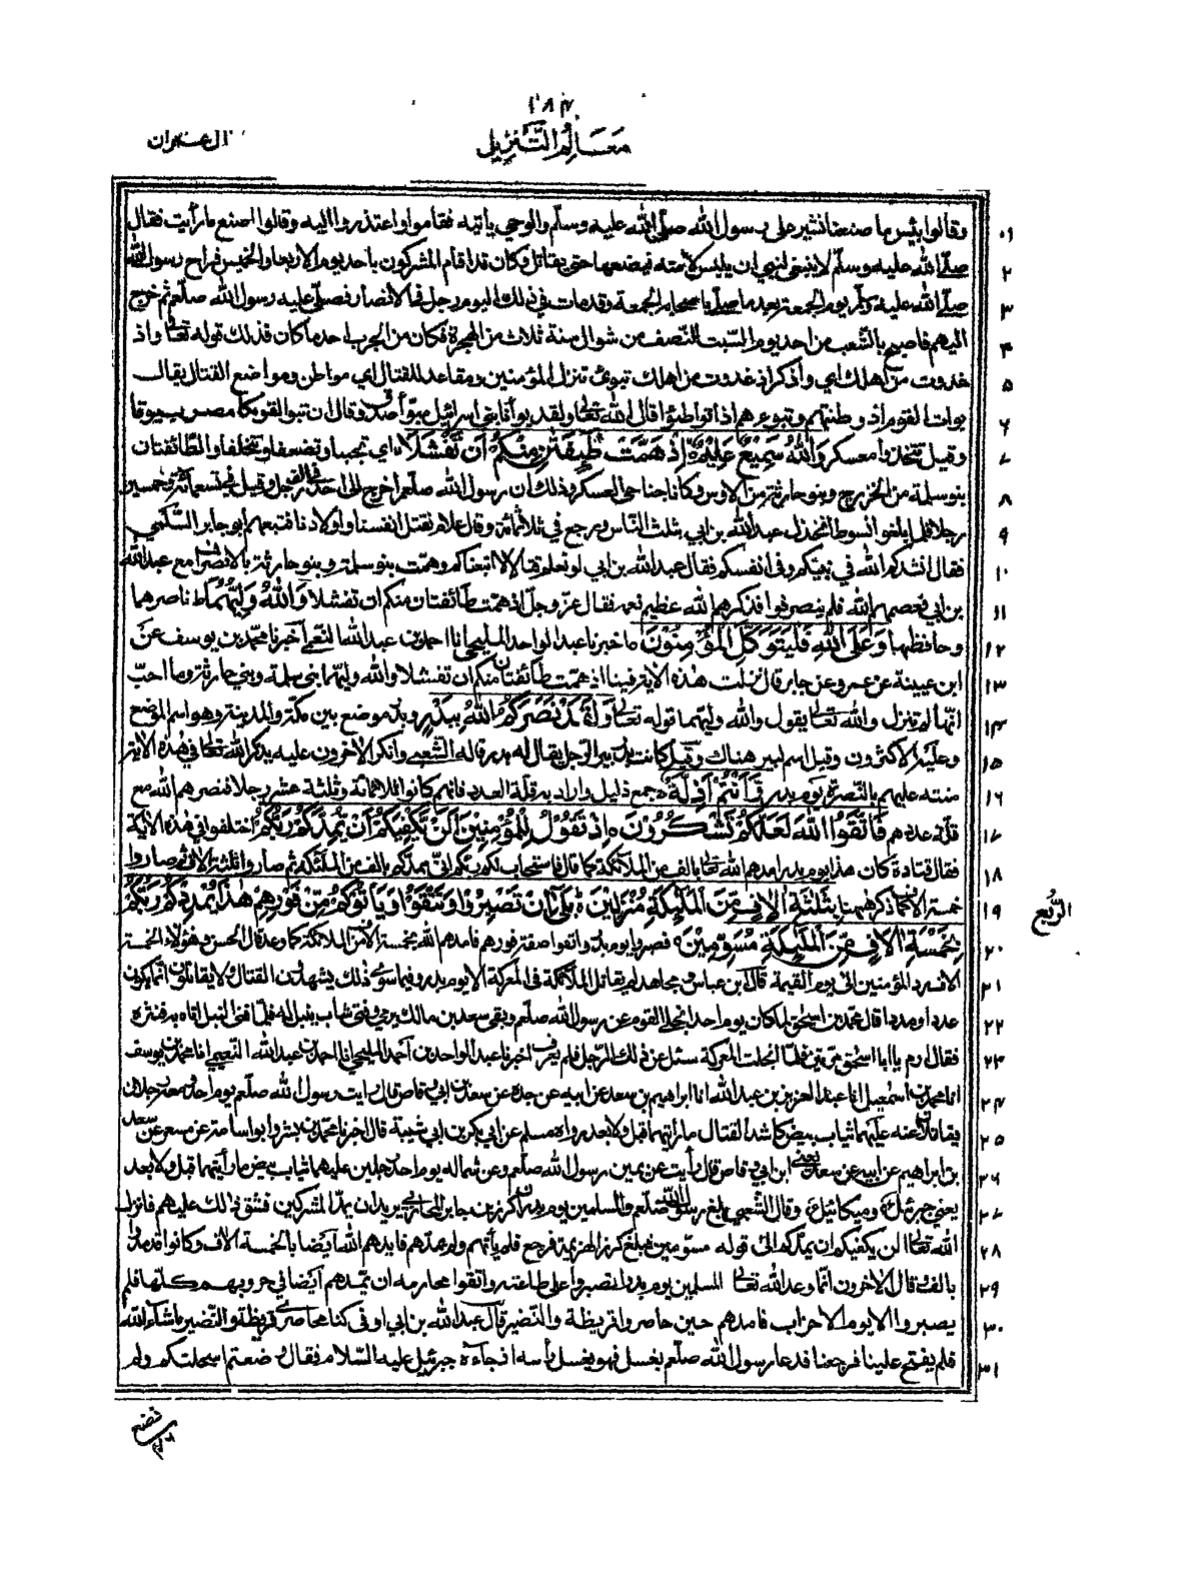 ١٨٧
معالم التنزيل
ال عمران
وقالوا بئس ما صنعنا نشير على رسول الله صلى الله عليه وسلم والوحي ياتيه فقاموا واعتذروا اليه وقالوا اصنع ما رأيت فقال
صلى الله عليه وسلم لا ينبغي لنبي ان يلبس لأمته فيضعها حتى يقاتل وكان قد اقام المشركون باحد يوم الاربعاء والخميس فراح رسول الله
صلى الله عليه وسلم يوم الجمعة بعد ما صلى باصحابه الجمعة وقد مات في ذلك اليوم رجل من الانصار فصلى عليه رسول الله صلعم ثم خرج
اليهم فاصبح بالشعب من احد يوم السبت النصف من شوال سنة ثلاث من الهجرة فكان من الحرب احد ما كان فذلك قوله تعالى واذ
غدوت من اهلك اي واذكر اذ غدوت من اهلك تبوئ تنزل المؤمنين مقاعد للقتال اي مواطن ومواضع القتال يقال
بوات القوم اذ وطنتهم وتبوءهم اذا تواطئوا قال الله تعالى ولقد بوأنا بني اسرائيل مبوأ صدق وقال ان تبوا لقومكما بمصر بيوتا
وقيل تتخذوا معسكر وَاللهُ سَمِيعٌ عَلِيمٌ اِذْ هَمَّتْ طَّائِفَتٰنِ مِنْكُمْ اَنْ تَفْشَلَا اي تجبنا وتضعفا وتخلفا والطائفتان
بنو سلمة من الخزرج وبنو حارثة من الاوس وكانا جناحي العسكر وذلك ان رسول الله صلعم خرج الى احد في الف رجل وقيل في تسعمائة وخمسين
رجلا فلما بلغوا الشوط انخذل عبد الله بن ابي بثلث الناس ورجع في ثلاثمائة وقال علام نقتل انفسنا واولادنا فتبعهم ابو جابر السلمي
فقال انشدكم الله في نبيكم وفي انفسكم فقال عبد الله بن ابي لو نعلم قتالا لاتبعناكم وهمت بنو سلمة وبنو حارثة بالانصراف مع عبد الله
بن ابي فعصمهم الله فلم ينصرفوا فذكرهم الله عظيم نعمه فقال عز وجل اذ همت طائفتان منكم ان تفشلا وَاللهُ وَلِيُّهُمَا ناصرهما
وحافظهما وَعَلَى اللهِ فَلْيَتَوَكَّلِ الْمُؤْمِنُوْنَ ما خبرنا عبد الواحد المليحي انا احمد بن عبد الله النعيمي اخبرنا محمد بن يوسف عن
ابن عيينة عن عمرو عن جابر قال نزلت هذه الاية فينا اذ همت طائفتان منكم ان تفشلا والله وليهما بني سلمة وبني حارثة وما احب
انها لم تنزل والله تعالى يقول والله وليهما قوله تعالى وَلَقَدْ نَصَرَكُمُ اللهُ بِبَدْرٍ وبدر موضع بين مكة والمدينة وهو اسم الموضع
وعليه الاكثرون وقيل اسم لبير هناك وقيل كانت بدر بير الرجل يقال له بدر قاله الشعبي وانكر الآخرون عليه يذكر الله تعالى في هذه الاية
منته عليهم بالنصرة يوم بدر وَاَنْتُمْ اَذِلَّةٌ جمع ذليل واراد به قلة العدد فانهم كانوا ثلاثمائة وثلثة عشر رجلا فنصرهم الله مع
قلة عددهم فَاتَّقُوا اللهَ لَعَلَّكُمْ تَشْكُرُوْنَ اِذْ تَقُوْلُ لِلْمُؤْمِنِيْنَ اَلَنْ يَّكْفِيَكُمْ اَنْ يُّمِدَّكُمْ رَبُّكُمْ اختلفوا في هذه الآية
فقال قتادة كان هذا يوم بدر امدهم الله تعالى بالف من الملائكة كما قال فاستجاب لكم ربكم اني ممدكم بالف من الملئكة ثم صاروا ثلثة الاف ثم صاروا
خمسة الاف كما ذكر ههنا بِثَلٰثَةِ اٰلَافٍ مِّنَ الْمَلٰئِكَةِ مُنْزَلِيْنَ بَلٰى اِنْ تَصْبِرُوْا وَتَتَّقُوْا وَيَأْتُوْكُمْ مِّنْ فَوْرِهِمْ هٰذَا يُمْدِدْكُمْ رَبُّكُمْ
بِخَمْسَةِ اٰلَافٍ مِّنَ الْمَلٰئِكَةِ مُسَوِّمِيْنَ فصبروا يوم بدر واتقوا فامدهم الله بخمسة الاف من الملائكة كما وعد قال الحسن وهؤلاء الخمسة
الاف رد المؤمنين الى يوم القيمة قال ابن عباس ومجاهد لم يقاتل الملائكة في المعركة الا يوم بدر وفيما سوى ذلك يشهدون القتال ولا يقاتلون انما يكون
عددا ومددا قال محمد بن اسحق لما كان يوم احد انجلى القوم عن رسول الله صلعم وبقي سعد بن مالك يرمي وفتى شاب ينبل له فلما فنى النبل اتاه به فنثره
فقال ارم يا ابا اسحق مرتين فلما انجلت المعركة سئل عن ذلك الرجل فلم يعرف اخبرنا عبد الواحد بن احمد المليحي انا احمد بن عبد الله النعيمي انا محمد بن يوسف
انا محمد بن اسمعيل انا عبد العزيز بن عبد الله انا ابراهيم بن سعد عن ابيه عن جده عن سعد بن ابي وقاص قال رايت رسول الله صلعم يوم احد ومعه رجلان
يقاتلان عنه عليهما ثياب بيض كاشد القتال ما رايتهما قبل ولا بعد رواه مسلم عن ابي بكر بن ابي شيبة قال اخبرنا محمد بن بشر وابو اسامة عن مسعر عن سعد
بن ابراهيم عن ابيه عن سعد يعني ابن ابي وقاص قال رأيت عن يمين رسول الله صلعم وعن شماله يوم احد رجلين عليهما ثياب بيض ما رأيتهما قبل ولا بعد
يعني جبرئيل وميكائيل وقال الشعبي بلغ رسول الله صلعم والمسلمين يوم بدر ان كرز بن جابر المحاربي يريد ان يمد المشركين فشق ذلك عليهم فانزل
الله تعالى الن يكفيكم ان يمدكم الى قوله مسومين فبلغ كرز الهزيمة فرجع فلم يأتهم ولم يمدهم فلم يمدهم الله ايضا بالخمسة الاف وكانوا قد مدوا
بالف قال الاخرون انما وعد الله تعالى المسلمين يوم بدر ان صبروا على طاعته واتقوا محارمه ان يمدهم ايضا في حروبهم كلها فلم
يصبروا الا يوم الاحزاب فامدهم حين حاصروا قريظة والنضير قال عبد الله بن ابي اوفى كنا محاصري قريظة والنضير ما شاء الله
فلم يفتح علينا فرجعنا فدعا رسول الله صلعم بغسل فهو يغسل رأسه اذ جاءه جبرئيل عليه السلام فقال وضعتم اسلحتكم ولم
الربع
تضع